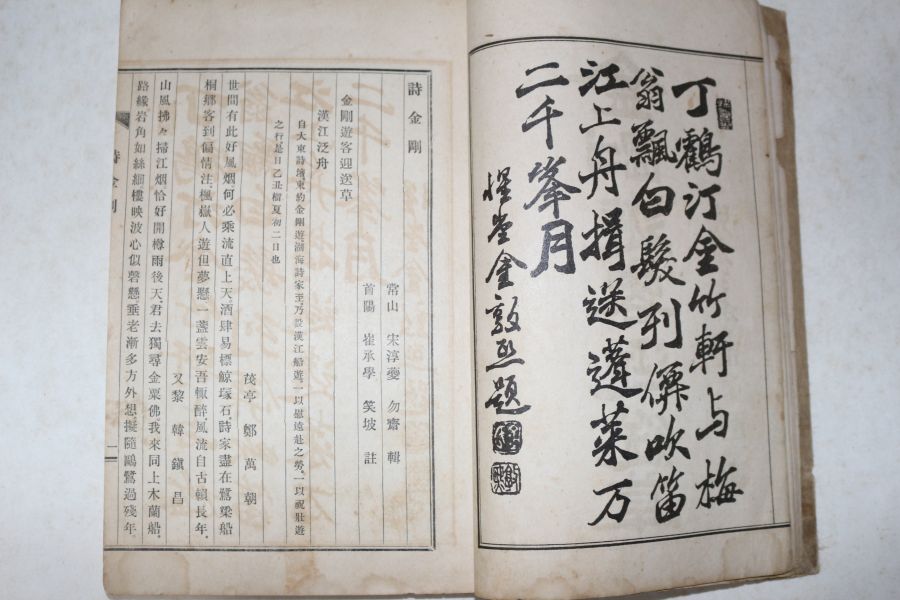 丁鶴汀金竹軒与梅
翁飄白髮列僊吹笛
江上舟揖送蓬萊万
二千峯月
惺堂金敦熙題
詩金剛
常山 宋淳夔 勿齋 輯
首陽 崔承學 笑坡 註
金剛遊客迎送草
漢江泛舟
自大東詩壇東約金剛遊湖海詩家至乃設漢江船遊、一以慰遠赴之勞、一以祝壯遊
之行是日乙丑榴夏初二日也
茂亭 鄭萬朝
世間有此好風烟何必乘流直上天、酒肆易標鯨塚石、詩家盡在鷺梁船
桐鄉客到偏情注、楓嶽人遊但夢懸、一盞雲安吾輒醉、風流自古賴長年、
又黎 韓鎭昌
山風拂々掃江烟恰好開樽雨後天、君去獨尋金粟佛、我來同上木蘭船、
路緣岩角如絲細樓映波心似磬懸垂老漸多方外想、擬隨鷗鷺過殘年、
詩金剛
一